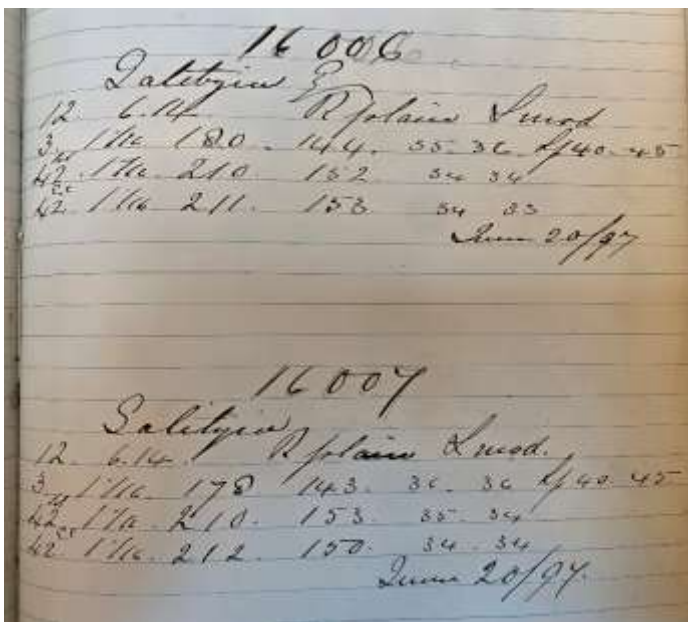 16006
12 6.14 R plain L mod
3 1 1/16 180. 144. 35. 36 40. 45
42. 1 1/16 210. 152 34 34
42. 1 1/16 211. 153 34 33
June 20/97
16007
12. 6.14. R plain L mod.
3 1 1/16 178 143. 36. 36 40. 45
42 1 1/16 210. 153. 35. 34
42 1 1/16. 212. 150. 34. 34.
June 20/97.